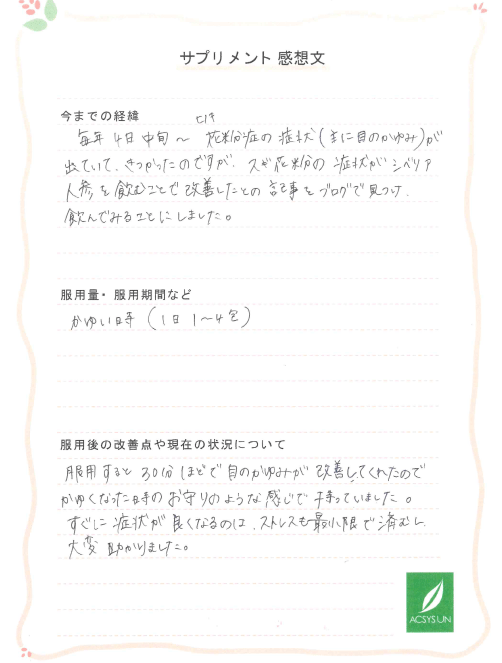 サプリメント 感想文
今までの経緯
ヒノキ
毎年 4月中旬～ 花粉症の症状(主に目のかゆみ)が
出ていて、きつかったのですが、スギ花粉の症状がシベリア
人参を飲むことで改善したとの記事をブログで見つけ、
飲んでみることにしました。
服用量・服用期間など
かゆい時 (1日1～4包)
服用後の改善点や現在の状況について
服用すると30分ほどで目のかゆみが改善してくれたので
かゆくなった時のお守りのような感じで持っていました。
すぐに症状が良くなるのは、ストレスも最小限で済むし、
大変助かりました。
ACSYSUN